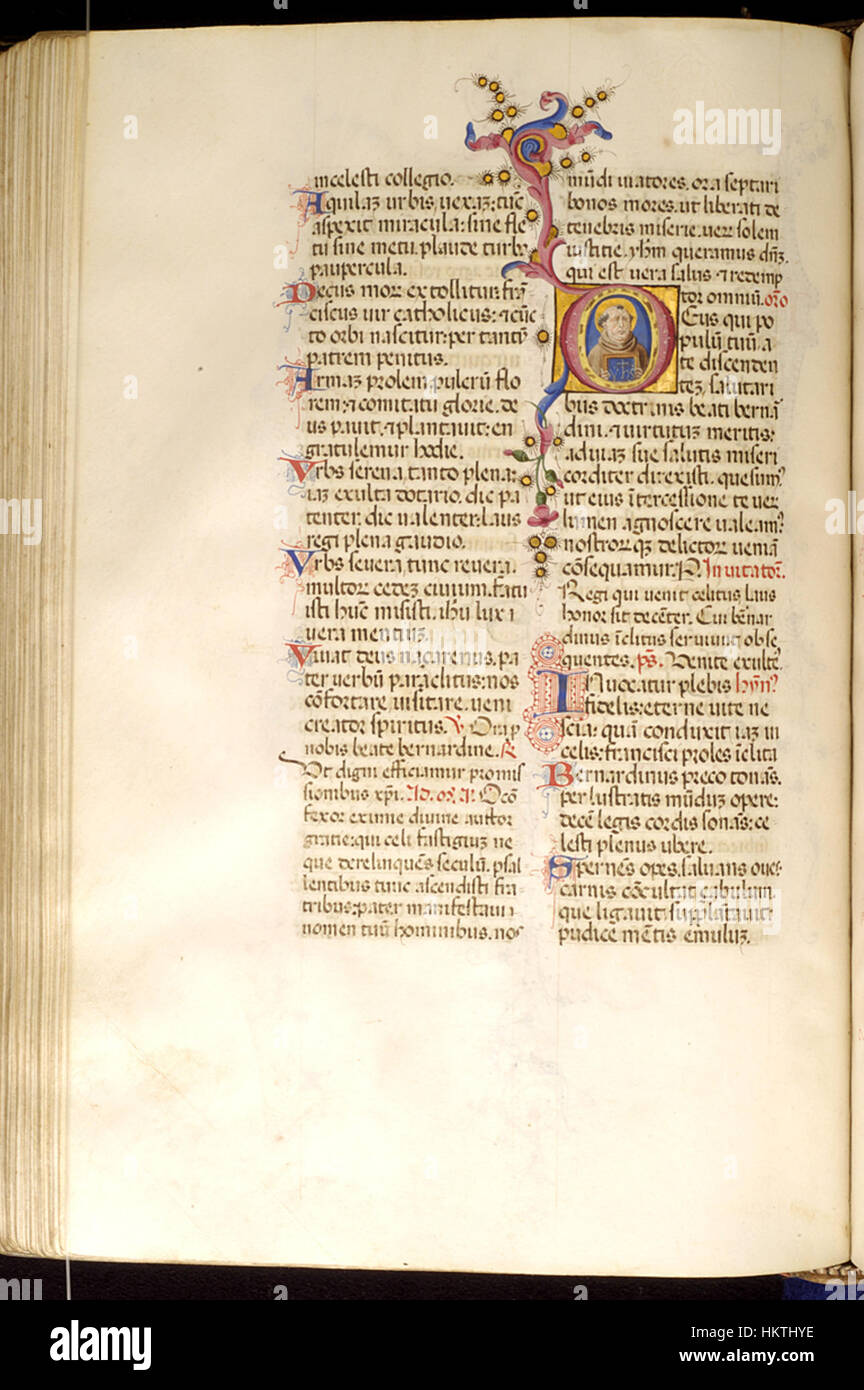 in celesti collegio.
Aquilaꝫ urbis, uexaꝫ: tūc
aspexit miracula: sine fle
tu sine metu. plaude turba
paupercula.
Decus moꝝ extollitur: frā
ciscus uir catholicus:
to orbi nascitur: per tantū
patrem penitus.
Armaꝫ prolem, pulcrū flo
rem: ⁊ comitatu glorie. de
us pauit, ⁊ plantauit: en
gratulemur hodie.
Vrbs serena tanto plena:
iaꝫ exulta dotario. dic pa
tenter. dic ualenter: laus
regi plena gaudio.
Vrbs seuera tunc reuera.
multoꝝ cedeꝫ ciuium. fatu
isti hūc misisti. ihu lux i
uera mentiuꝫ.
Viuat deus naçarenus. pa
ter uerbū paraclitus: nos
cōfortare. uisitare. ueni
creator spiritus. V Ora ꝓ
nobis beate bernardine. R
Vt digni efficiamur promis
sionibus xp̄i. Ad. A. O cō
fexor eximie diuine auttor
gratie: qui celi fastigiuꝫ ne
que derelinquēs seculū. psal
lentibus tunc ascendisti fra
tribus: pater manifestaui
nomen tuū hominibus. nos
mūdi uiatores. ora septari
bonos mores. ut liberati de
tenebris miserie. ueꝝ solem
iustitie. yhm queramus dn̄ꝫ.
qui est uera salus ⁊ redemp
tor omniū. oro
Deus qui po
pulū tuū a
te discenden
teꝫ, salutari
bus doctrinis beati bernā
dini. ⁊ uirtutuꝫ meritis:
ad uiaꝫ sue salutis miseri
corditer direxisti. quesum
ut eius ītercessione te ueꝝ
lumen agnoscere ualeam
nostroꝝ qꝫ delictoꝝ ueniā
cōsequamur. P. Inuitator.
Regi qui uenit celitus laus
honor sit decēter. Cui bernar
dinus īclitus seruiuit obse
quentes. ps. Venite exulte
Iliuceatur plebis hyn
fidelis: eterne uite ne
scia: quā conduxit iaꝫ in
celis: francisci proles īclita
Bernardinus preco tonās.
perlustratis mūduꝫ opere:
decē legis cordis sonās: ce
lesti plenus ubere.
Spernēs opes, saluans oues:
carnis cōcultat
que ligauit supplātauit:
pudice mētis emuluꝫ.
alamy
a
Image ID: HKTHYE
www.alamy.com